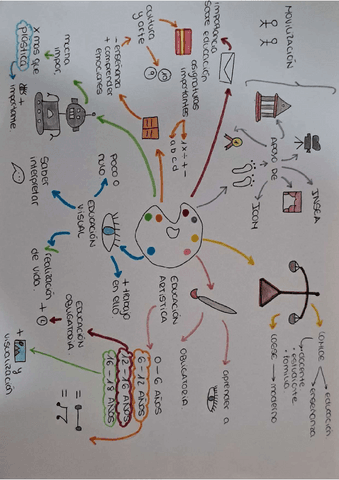 MOVILIZACIÓN
importancia
sobre educación
cultura
y arte
asignaturas
importantes
1 x ÷ + -
a b c d
- enseñanza
+ comprender
emociones
mucha
impor.
x mas que
plástica
+
importante
APOYO DE
INSEA
ICOM
Poco o
nulo
Saber
interpretar
EDUCACIÓN
VISUAL
+ trabajo
en ello
realización
de vida
EDUCACIÓN
ARTISTICA
aprender a
OBLIGATORIA
0 - 6 AÑOS
6 - 12 AÑOS
12 - 16 AÑOS
16 - 18 AÑOS
EDUCACIÓN
OBLIGATORIA
+
+ y
visualización
=
=
LOMLOE
educación
enseñanza
docente
estudiante
familia
LOGSE → moderno